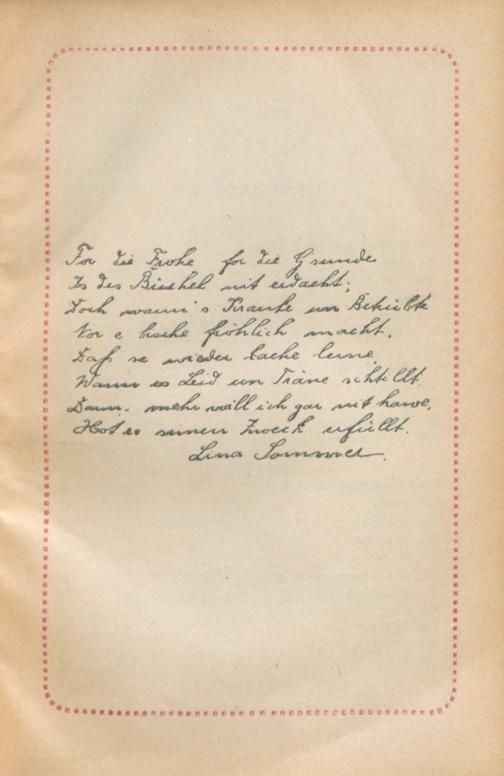 For die Frohe for die Gsunde
Is des Büchel nit erdacht;
Doch wann's Kranke un Betrübte
Nor e bische fröhlich macht.
Daß se wieder lache lerne,
Wann es Leid un Träne schtillt
Dann - mehr will ich gar nit hawe,
Hot es seinen Zweck erfüllt.
Lina Sommer.